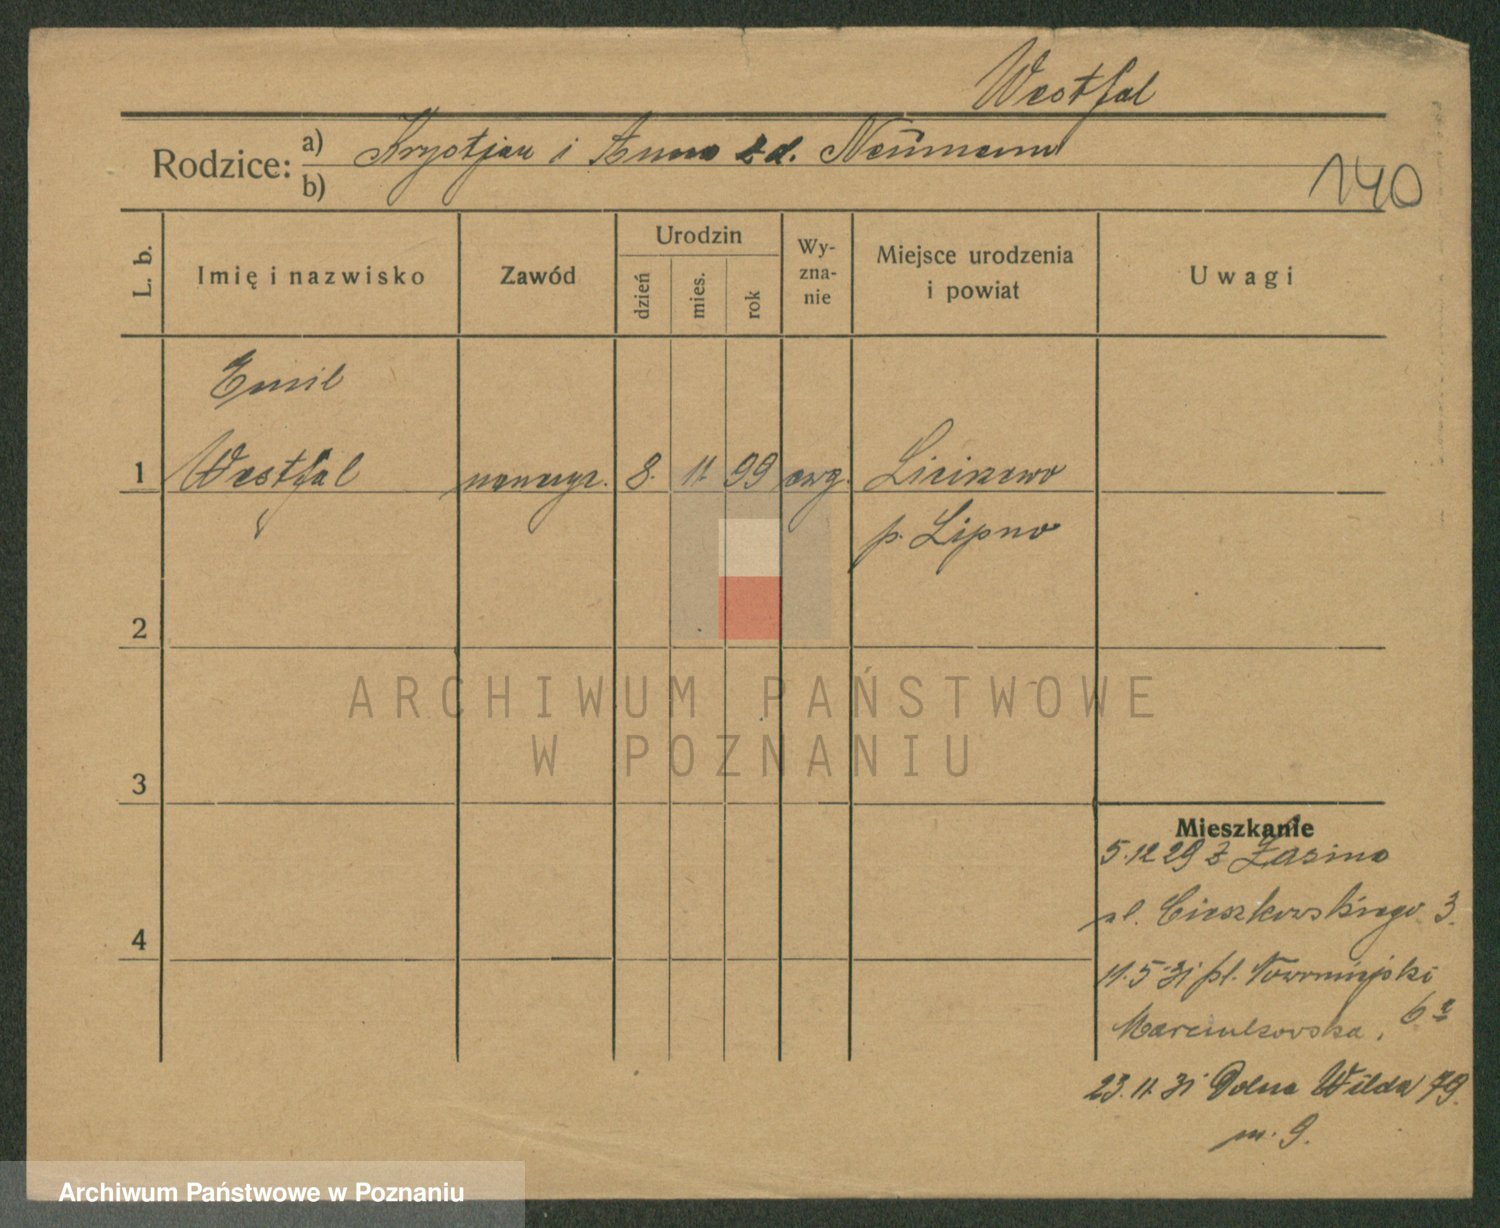 Westfal
Rodzice: a) Krystjan i Anna z d. Neumann
b)
140
L. b.
Imię i nazwisko
Zawód
Urodzin
dzień
mies.
rok
Wy-
zna-
nie
Miejsce urodzenia
i powiat
Uwagi
Emil
1 Westfal 8. 11 99 ewg. Liciszewo
p. Lipno
2
ARCHIWUM PAŃSTWOWE
W POZNANIU
3
Mieszkanie
5.12 29 z
ul. Cieszkowskiego 3.
4
11.5 31 pl. Nowomiejski
6a
23.11 31 Dolna Wilda 79.
m. 9.
Archiwum Państwowe w Poznaniu